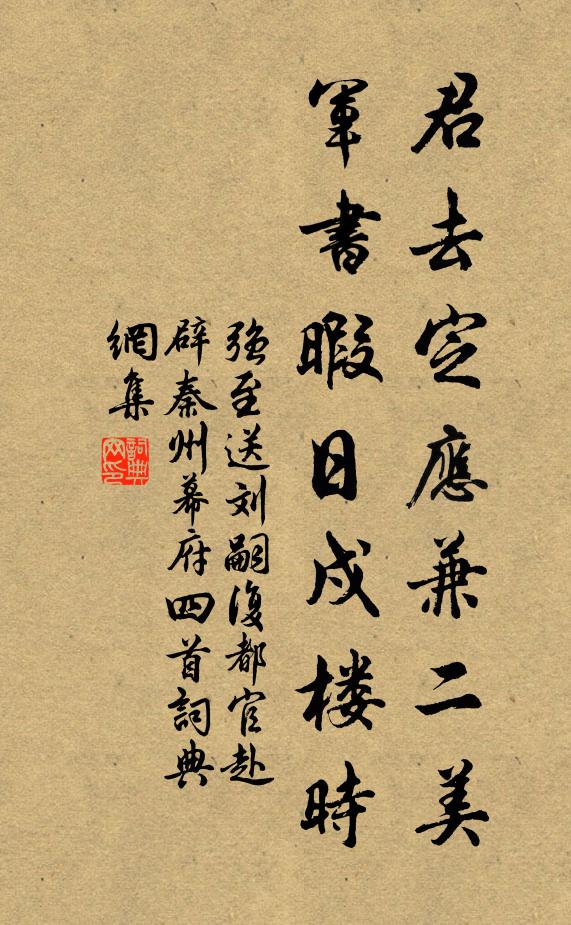 君去定應兼二美
軍書暇日戍楼時
强至送刘嗣復都官赴
辟秦州幕府四首詞典
網集
詞典
网印